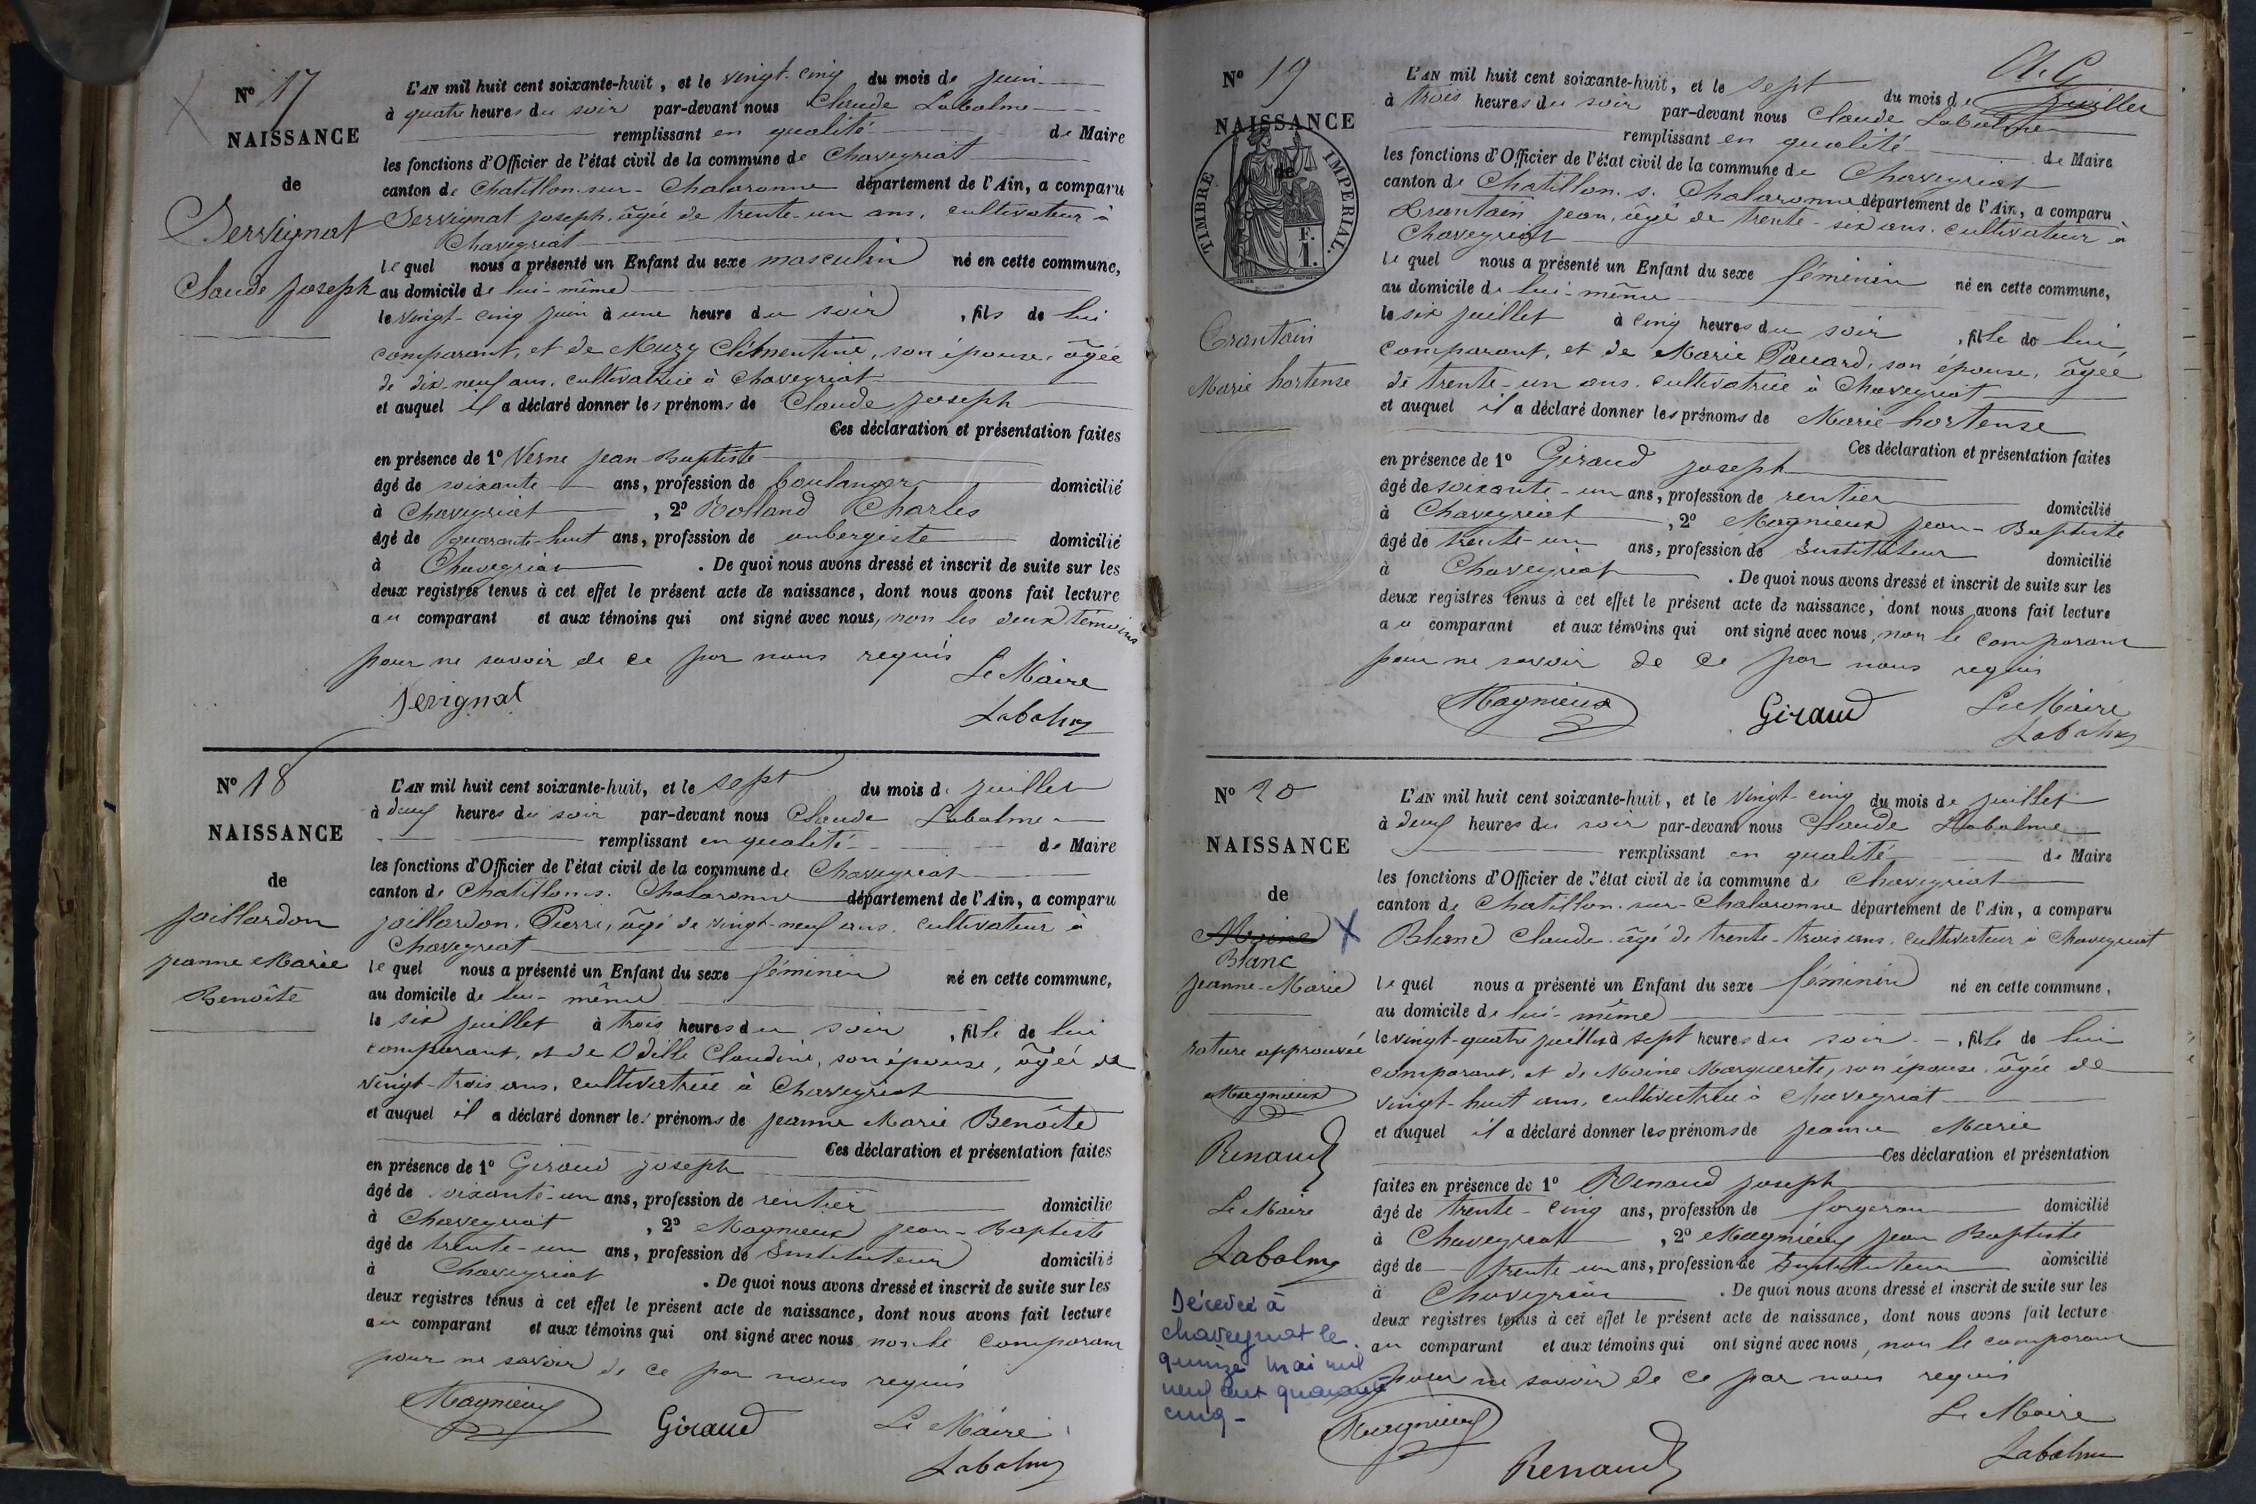 N° 17
NAISSANCE
de
Servignat
Claude Joseph
L'AN mil huit cent soixante-huit, et le vingt-cinq du mois de juin
à quatre heures du soir par-devant nous Claude Labalme
remplissant en qualité de Maire
les fonctions d'Officier de l'état civil de la commune de Chaveyriat
canton de Chatillon-sur-Chalaronne département de l'Ain, a comparu
Servignat joseph, âgée de trente-un ans, cultivateur à
Chaveyriat
lequel nous a présenté un Enfant du sexe masculin né en cette commune,
au domicile de lui-même
le vingt-cinq juin à une heure du soir, fils de lui
comparant, et de Muzy Clémentine, son épouse, âgée
de dix-neuf ans, cultivatrice à Chaveyriat
et auquel il a déclaré donner les prénoms de Claude joseph
Ces déclaration et présentation faites
en présence de 1° Verne jean-Baptiste
âgé de soixante ans, profession de boulanger domicilié
à Chaveyriat, 2° Rolland Charles
âgé de quarante-huit ans, profession de aubergiste domicilié
à Chaveyriat. De quoi nous avons dressé et inscrit de suite sur les
deux registres tenus à cet effet le présent acte de naissance, dont nous avons fait lecture
au comparant et aux témoins qui ont signé avec nous, non les deux témoins
pour ne savoir de ce par nous requis
Le Maire
Servignat
Labalme
N° 18
NAISSANCE
de
Jaillardon
jeanne Marie
Benoîte
L'AN mil huit cent soixante-huit, et le sept du mois de juillet
à deux heures du soir par-devant nous Claude Labalme
remplissant en qualité de Maire
les fonctions d'Officier de l'état civil de la commune de Chaveyriat
canton de Chatillon s. Chalaronne département de l'Ain, a comparu
jaillardon, Pierre, âgé de vingt-neuf ans, cultivateur à
Chaveyriat
lequel nous a présenté un Enfant du sexe féminin né en cette commune,
au domicile de lui-même
le six juillet à trois heures du soir, fille de lui
comparant, et de Odille Claudine, son épouse, âgée de
vingt-trois ans, cultivatrice à Chaveyriat
et auquel il a déclaré donner les prénoms de jeanne Marie Benoîte
Ces déclaration et présentation faites
en présence de 1° Giraud joseph
âgé de soixante-un ans, profession de rentier domicilié
à Chaveyriat, 2° Magnieux jean-Baptiste
âgé de trente-un ans, profession de Instituteur domicilié
à Chaveyriat. De quoi nous avons dressé et inscrit de suite sur les
deux registres tenus à cet effet le présent acte de naissance, dont nous avons fait lecture
au comparant et aux témoins qui ont signé avec nous non le comparant
pour ne savoir de ce par nous requis
Magnieux
Giraud
Le Maire
Labalme
N° 19
NAISSANCE
de
TIMBRE IMPÉRIAL
F.
1.
Crantain
Marie hortense
L'AN mil huit cent soixante-huit, et le sept du mois de juillet
à trois heures du soir par-devant nous Claude Labalme
remplissant en qualité de Maire
les fonctions d'Officier de l'état civil de la commune de Chaveyriat
canton de Chatillon s. Chalaronne département de l'Ain, a comparu
Crantain jean, âgé de trente-six ans, cultivateur à
Chaveyriat
lequel nous a présenté un Enfant du sexe féminin né en cette commune,
au domicile de lui-même
le six juillet à cinq heures du soir, fille de lui,
comparant, et de Marie Pauard, son épouse, âgée
de trente-un ans, cultivatrice à Chaveyriat
et auquel il a déclaré donner les prénoms de Marie hortense
Ces déclaration et présentation faites
en présence de 1° Giraud joseph
âgé de soixante-un ans, profession de rentier domicilié
à Chaveyriat, 2° Magnieux jean-Baptiste
âgé de trente-un ans, profession de Instituteur domicilié
à Chaveyriat. De quoi nous avons dressé et inscrit de suite sur les
deux registres tenus à cet effet le présent acte de naissance, dont nous avons fait lecture
au comparant et aux témoins qui ont signé avec nous, non le comparant
pour ne savoir de ce par nous requis
Magnieux
Giraud
Le Maire
Labalme
N° 20
NAISSANCE
de
Moine X
Blanc
jeanne-Marie
rature approuvée
Magnieux
Renaud
Le Maire
Labalme
Décédée à
chaveyriat le
quinze mai mil
neuf cent quarante
cinq -
L'AN mil huit cent soixante-huit, et le vingt-cinq du mois de juillet
à deux heures du soir par-devant nous Claude Labalme
remplissant en qualité de Maire
les fonctions d'Officier de l'état civil de la commune de Chaveyriat
canton de Chatillon-sur-Chalaronne département de l'Ain, a comparu
Blanc Claude âgé de trente-trois ans, cultivateur à Chaveyriat
lequel nous a présenté un Enfant du sexe féminin né en cette commune,
au domicile de lui-même
le vingt-quatre juillet à sept heures du soir, fille de lui
comparant, et de Moine Marguerite, son épouse, âgée de
vingt-huit ans, cultivatrice à Chaveyriat
et auquel il a déclaré donner les prénoms de jeanne Marie
Ces déclaration et présentation
faites en présence de 1° Renaud joseph
âgé de trente-cinq ans, profession de forgeron domicilié
à Chaveyriat, 2° Magnieux jean Baptiste
âgé de trente-un ans, profession de Instituteur domicilié
à Chaveyriat. De quoi nous avons dressé et inscrit de suite sur les
deux registres tenus à cet effet le présent acte de naissance, dont nous avons fait lecture
au comparant et aux témoins qui ont signé avec nous, non le comparant
pour ne savoir de ce par nous requis
Le Maire
Magnieux
Labalme
Renaud